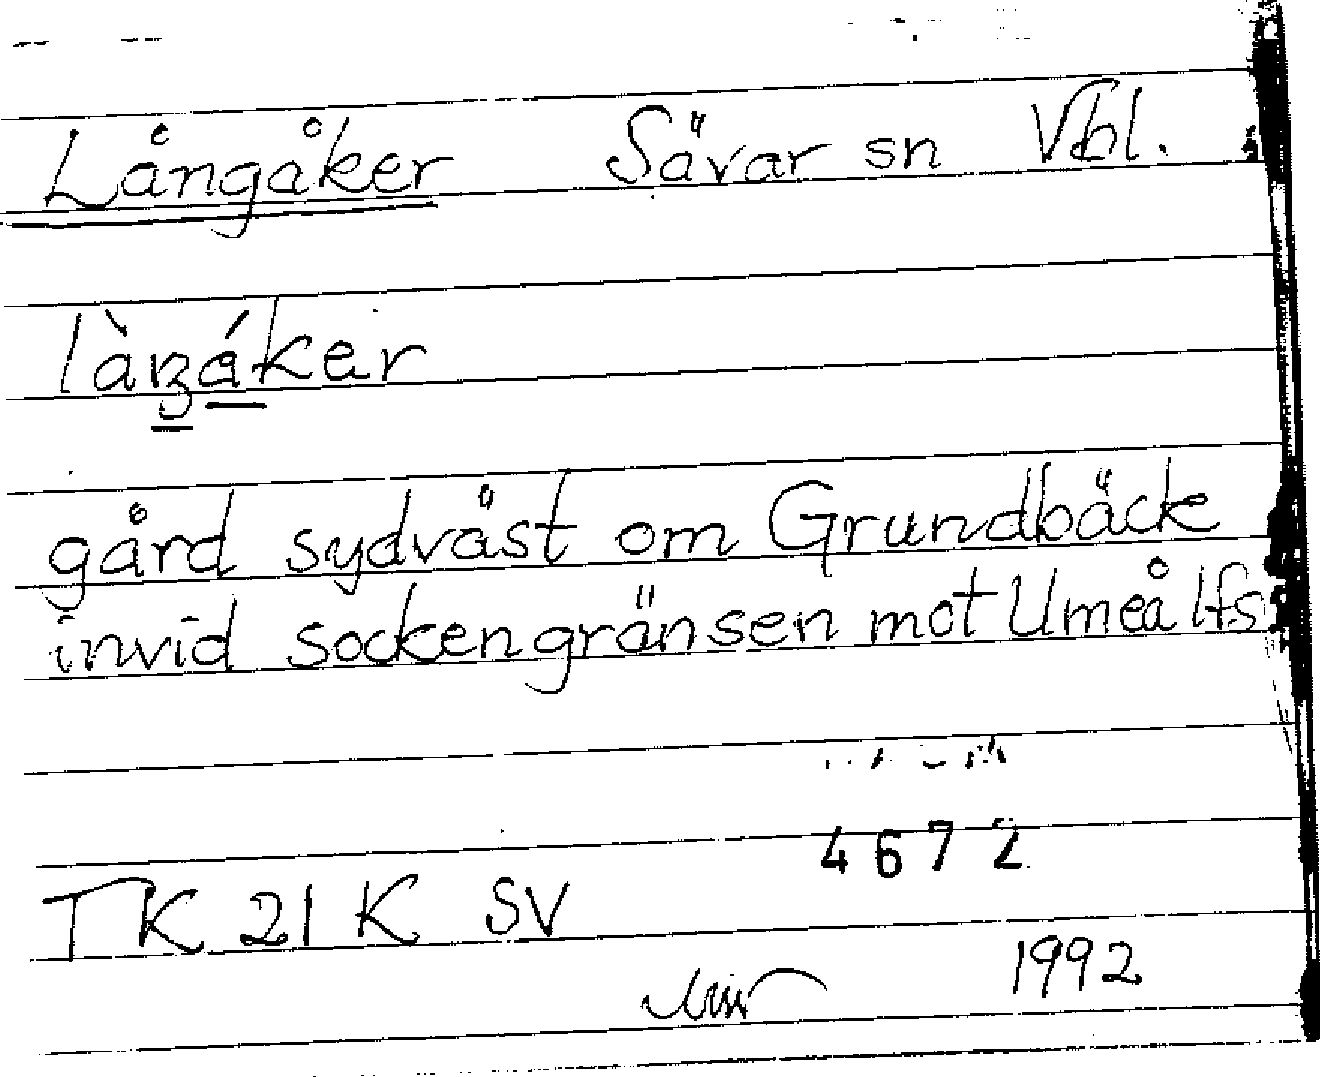 Långåker Sävar sn Vbl.
làŋáker
gård sydväst om Grundbäck
invid sockengränsen mot Umeå lfs
4672
TK 21 K SV
1992